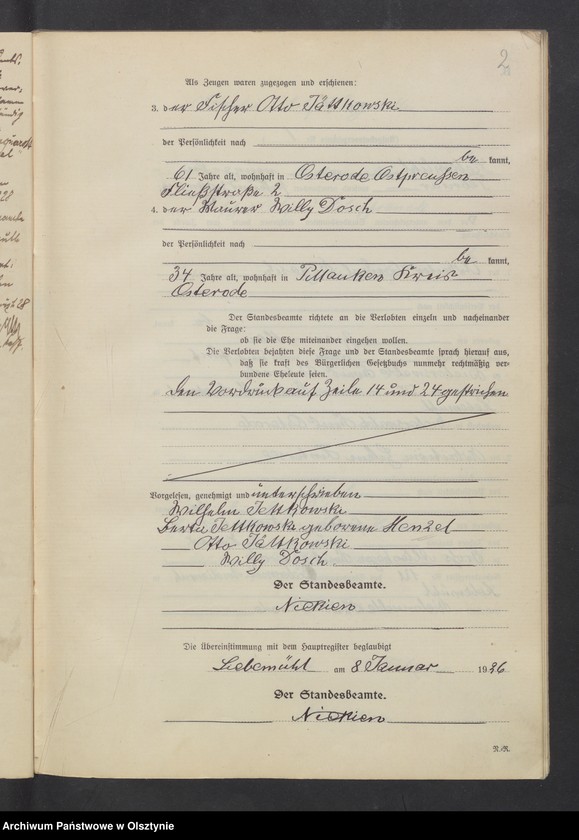 2
Als Zeugen waren zugezogen und erschienen:
3. der Fischer Otto Jättkowski
der Persönlichkeit nach
be kannt,
61 Jahre alt, wohnhaft in Osterode Ostpreussen
Fließstraße 2
4. der Maurer Willy Dosch
der Persönlichkeit nach
be kannt,
34 Jahre alt, wohnhaft in Pillauken Kreis
Osterode
Der Standesbeamte richtete an die Verlobten einzeln und nacheinander
die Frage:
ob sie die Ehe miteinander eingehen wollen.
Die Verlobten bejahten diese Frage und der Standesbeamte sprach hierauf aus,
daß sie kraft des Bürgerlichen Gesetzbuchs nunmehr rechtmäßig ver-
bundene Eheleute seien.
Den Vordruck auf Zeile 14 und 24 gestrichen
Vorgelesen, genehmigt und unterschrieben
Wilhelm Jettkowski
Berta Jettkowski geborene Henzel
Otto Jättkowski
Willy Dosch
Der Standesbeamte.
Die Übereinstimmung mit dem Hauptregister beglaubigt
Liebemühl am 8 Januar 1926
Der Standesbeamte.
Archiwum Państwowe w Olsztynie